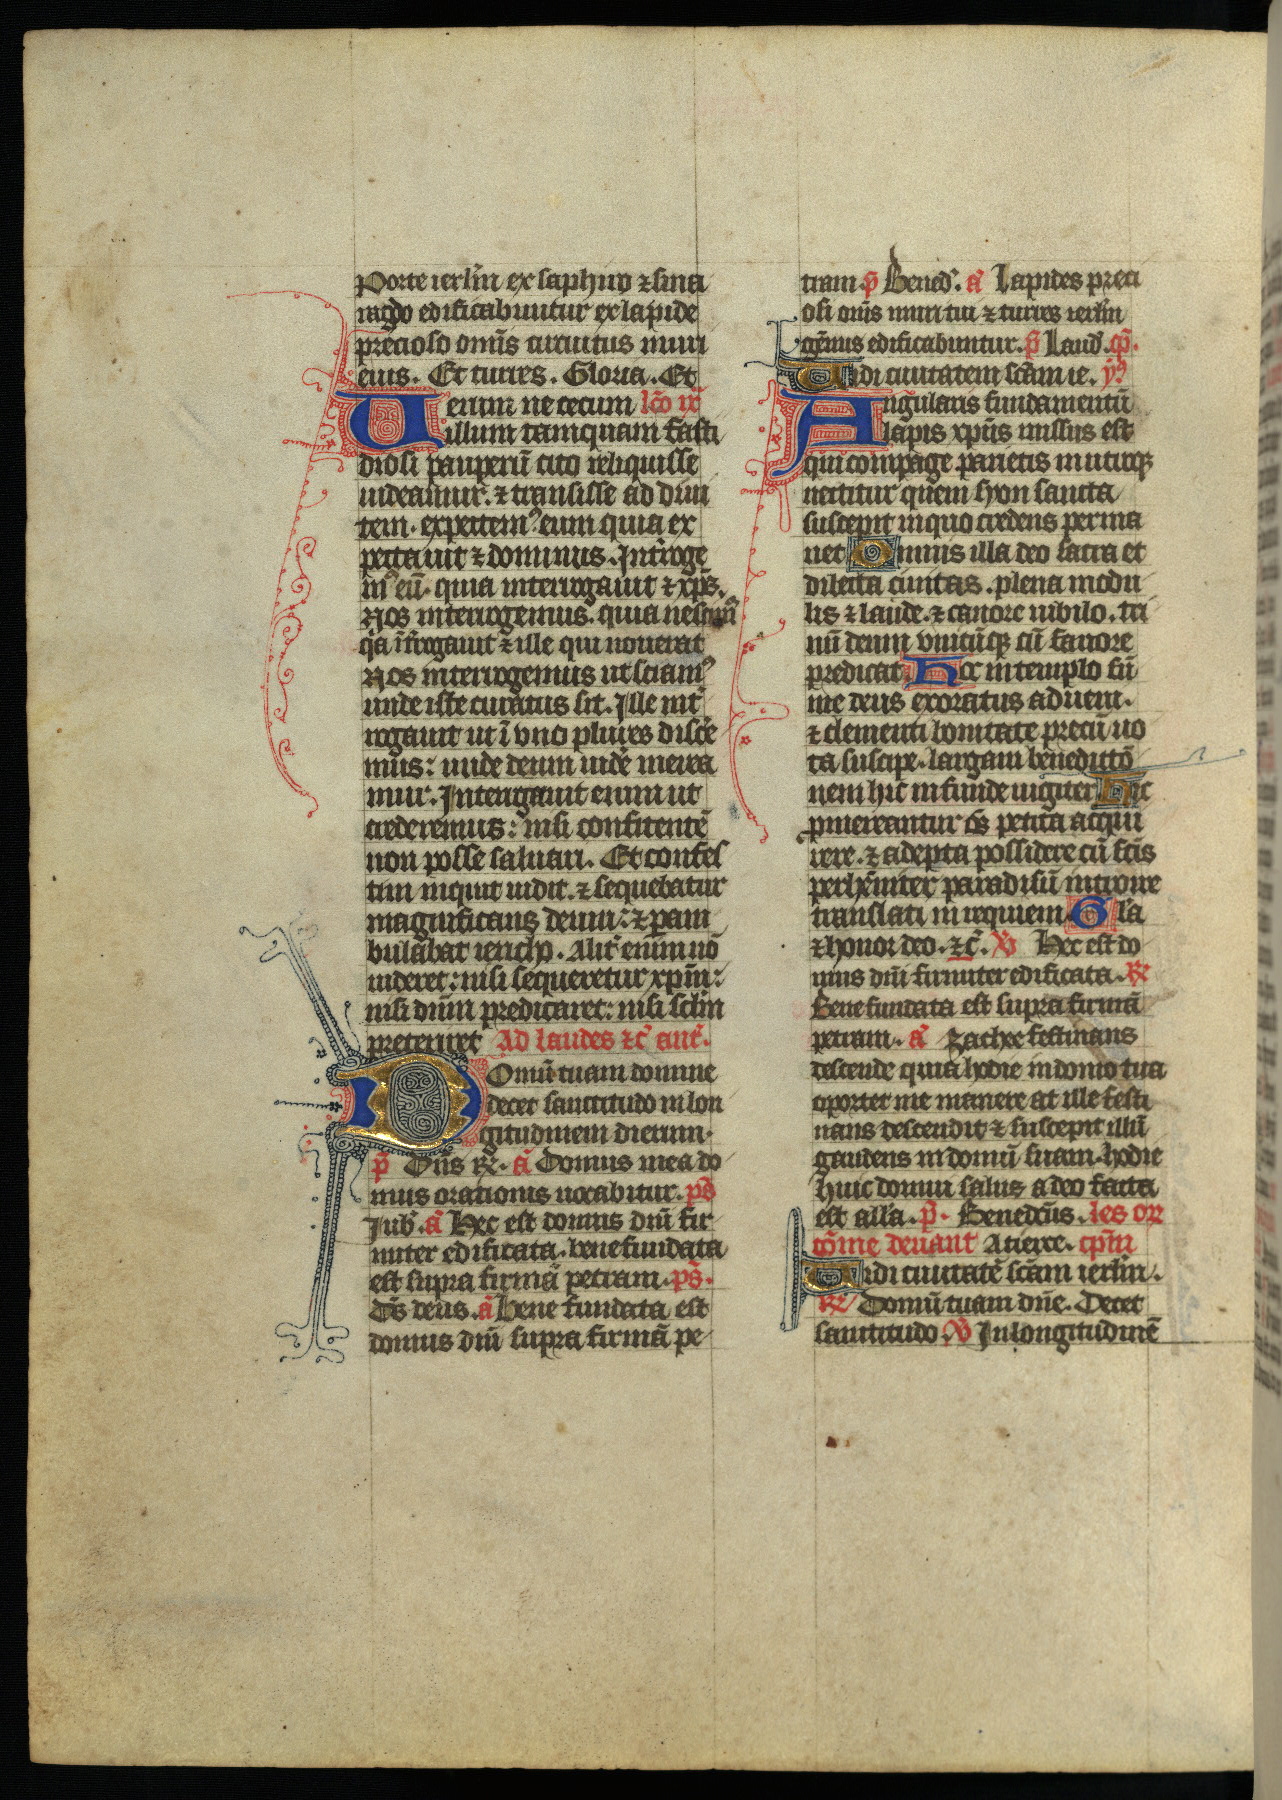 Porte ierlm̄ ex saphiro ⁊ sma
ragdo edificabuntur ex lapide
precioso om̄s circuitus muri
eius. Et turres. Gloria. Et
Uerum ne tecum lc̄o ix
illum tamquam fasti
diosi pauperū cito reliquisse
uideamur. ⁊ transisse ad diui
tem. expectem⁹ eum quia ex
pectauit ⁊ dominus. Int̄roge
m⁹ eū. quia interrogauit ⁊ xp̄s.
Nos interrogemus. quia nescim⁹
q̄a īt̄rogauit ⁊ ille qui nouerat
Nos interrogemus ut sciam⁹
unde iste curatus sit. Ille int̄
rogauit ut ī vno plures disce
mus: unde deum uide merea
mur. Interrogauit enim ut
crederemus: nisi confitentē
non posse saluari. Et confes
tim inquit uidit. ⁊ sequebatur
magnificans deum: ⁊ p̄am
bulabat iericho. Alit̄ enim nō
uideret: nisi sequeretur xp̄m:
nisi dn̄m predicaret: nisi sclm̄
preteriret Ad laudes ⁊c̄ ant̄.
Domū tuam domine
decet sanctitudo in lon
gitudinem dierum.
p̄ Dn̄s r̄e. ā Domus mea do
mus orationis uocabitur. ps̄
Jub̄. ā Hec est domus dn̄i fir
miter edificata. bene fundata
est supra firmā petram. ps̄.
Ds̄ deus. ā Bene fundata est
domus dn̄i supra firmā pe
tram. p̄ Bened̄. ā Lapides preci
osi om̄s muri tui ⁊ turres ierlm̄
gēmis edificabuntur. p̄ Laud̄. cp̄.
Uidi ciuitatem scām ie. ym̄⁹
Angularis fundamentū
lapis xp̄us missus est
qui compage parietis in utroqꝫ
nectitur quem syon sancta
suscepit in quo credens perma
net Omnis illa deo sacra et
dilecta ciuitas. plena modu
lis ⁊ laude. ⁊ canore iubilo. tri
nū deum vnicūqꝫ cū fauore
predicat Hoc in templo sū
me deus exoratus adueni.
⁊ clementi bonitate precū uo
ta suscipe. largam benedictō
nem hic infunde iugiter Hic
ꝓmereantur oēs petita acqui
rere. ⁊ adepta possidere cū scīs
perhēniter paradisū introire
translati in requiem Gl̄a
⁊ honor deo. ⁊c̄. V̄ Hec est do
mus dn̄i firmiter edificata. R̄e
Bene fundata est supra firmā
petram. ā Zachee festinans
descende quia hodie in domo tua
oportet me manere at ille festi
nans descendit ⁊ suscepit illū
gaudens in domū suam. hodie
huic domui salus a deo facta
est all̄a. p̄. Benedc̄us. les orꝛ
cōme deuant A tierce. cp̄m
Uidi ciuitatē scām ierlm̄.
R̄e Domū tuam dn̄e. Decet
sanctitudo. V̄ In longitudinē